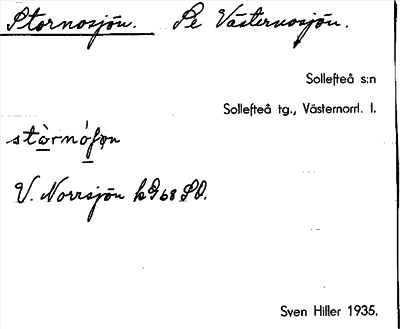 Stornosjön. Se Västernosjön.
Sollefteå s:n
Sollefteå tg., Västernorrl. l.
stòrnóʃǫn
V. Norrsjön kG68SO.
Sven Hiller 1935.